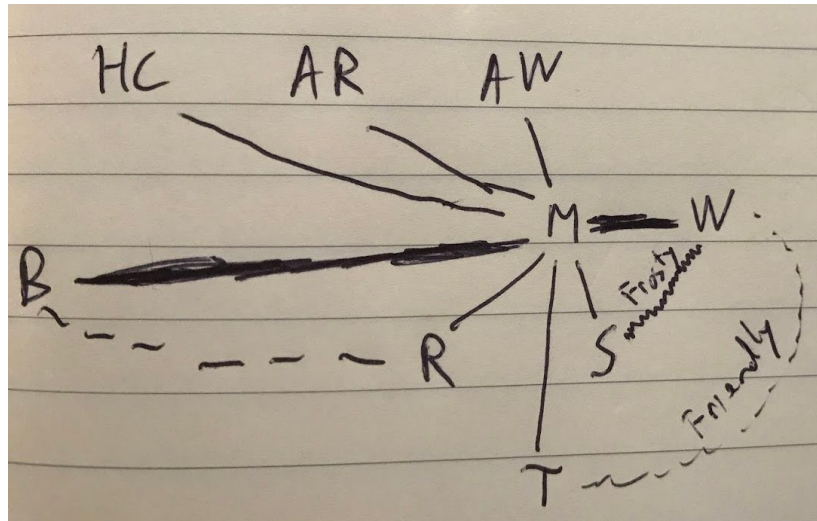 HC AR AW
M W
B Frosty
R S
Friendly
T